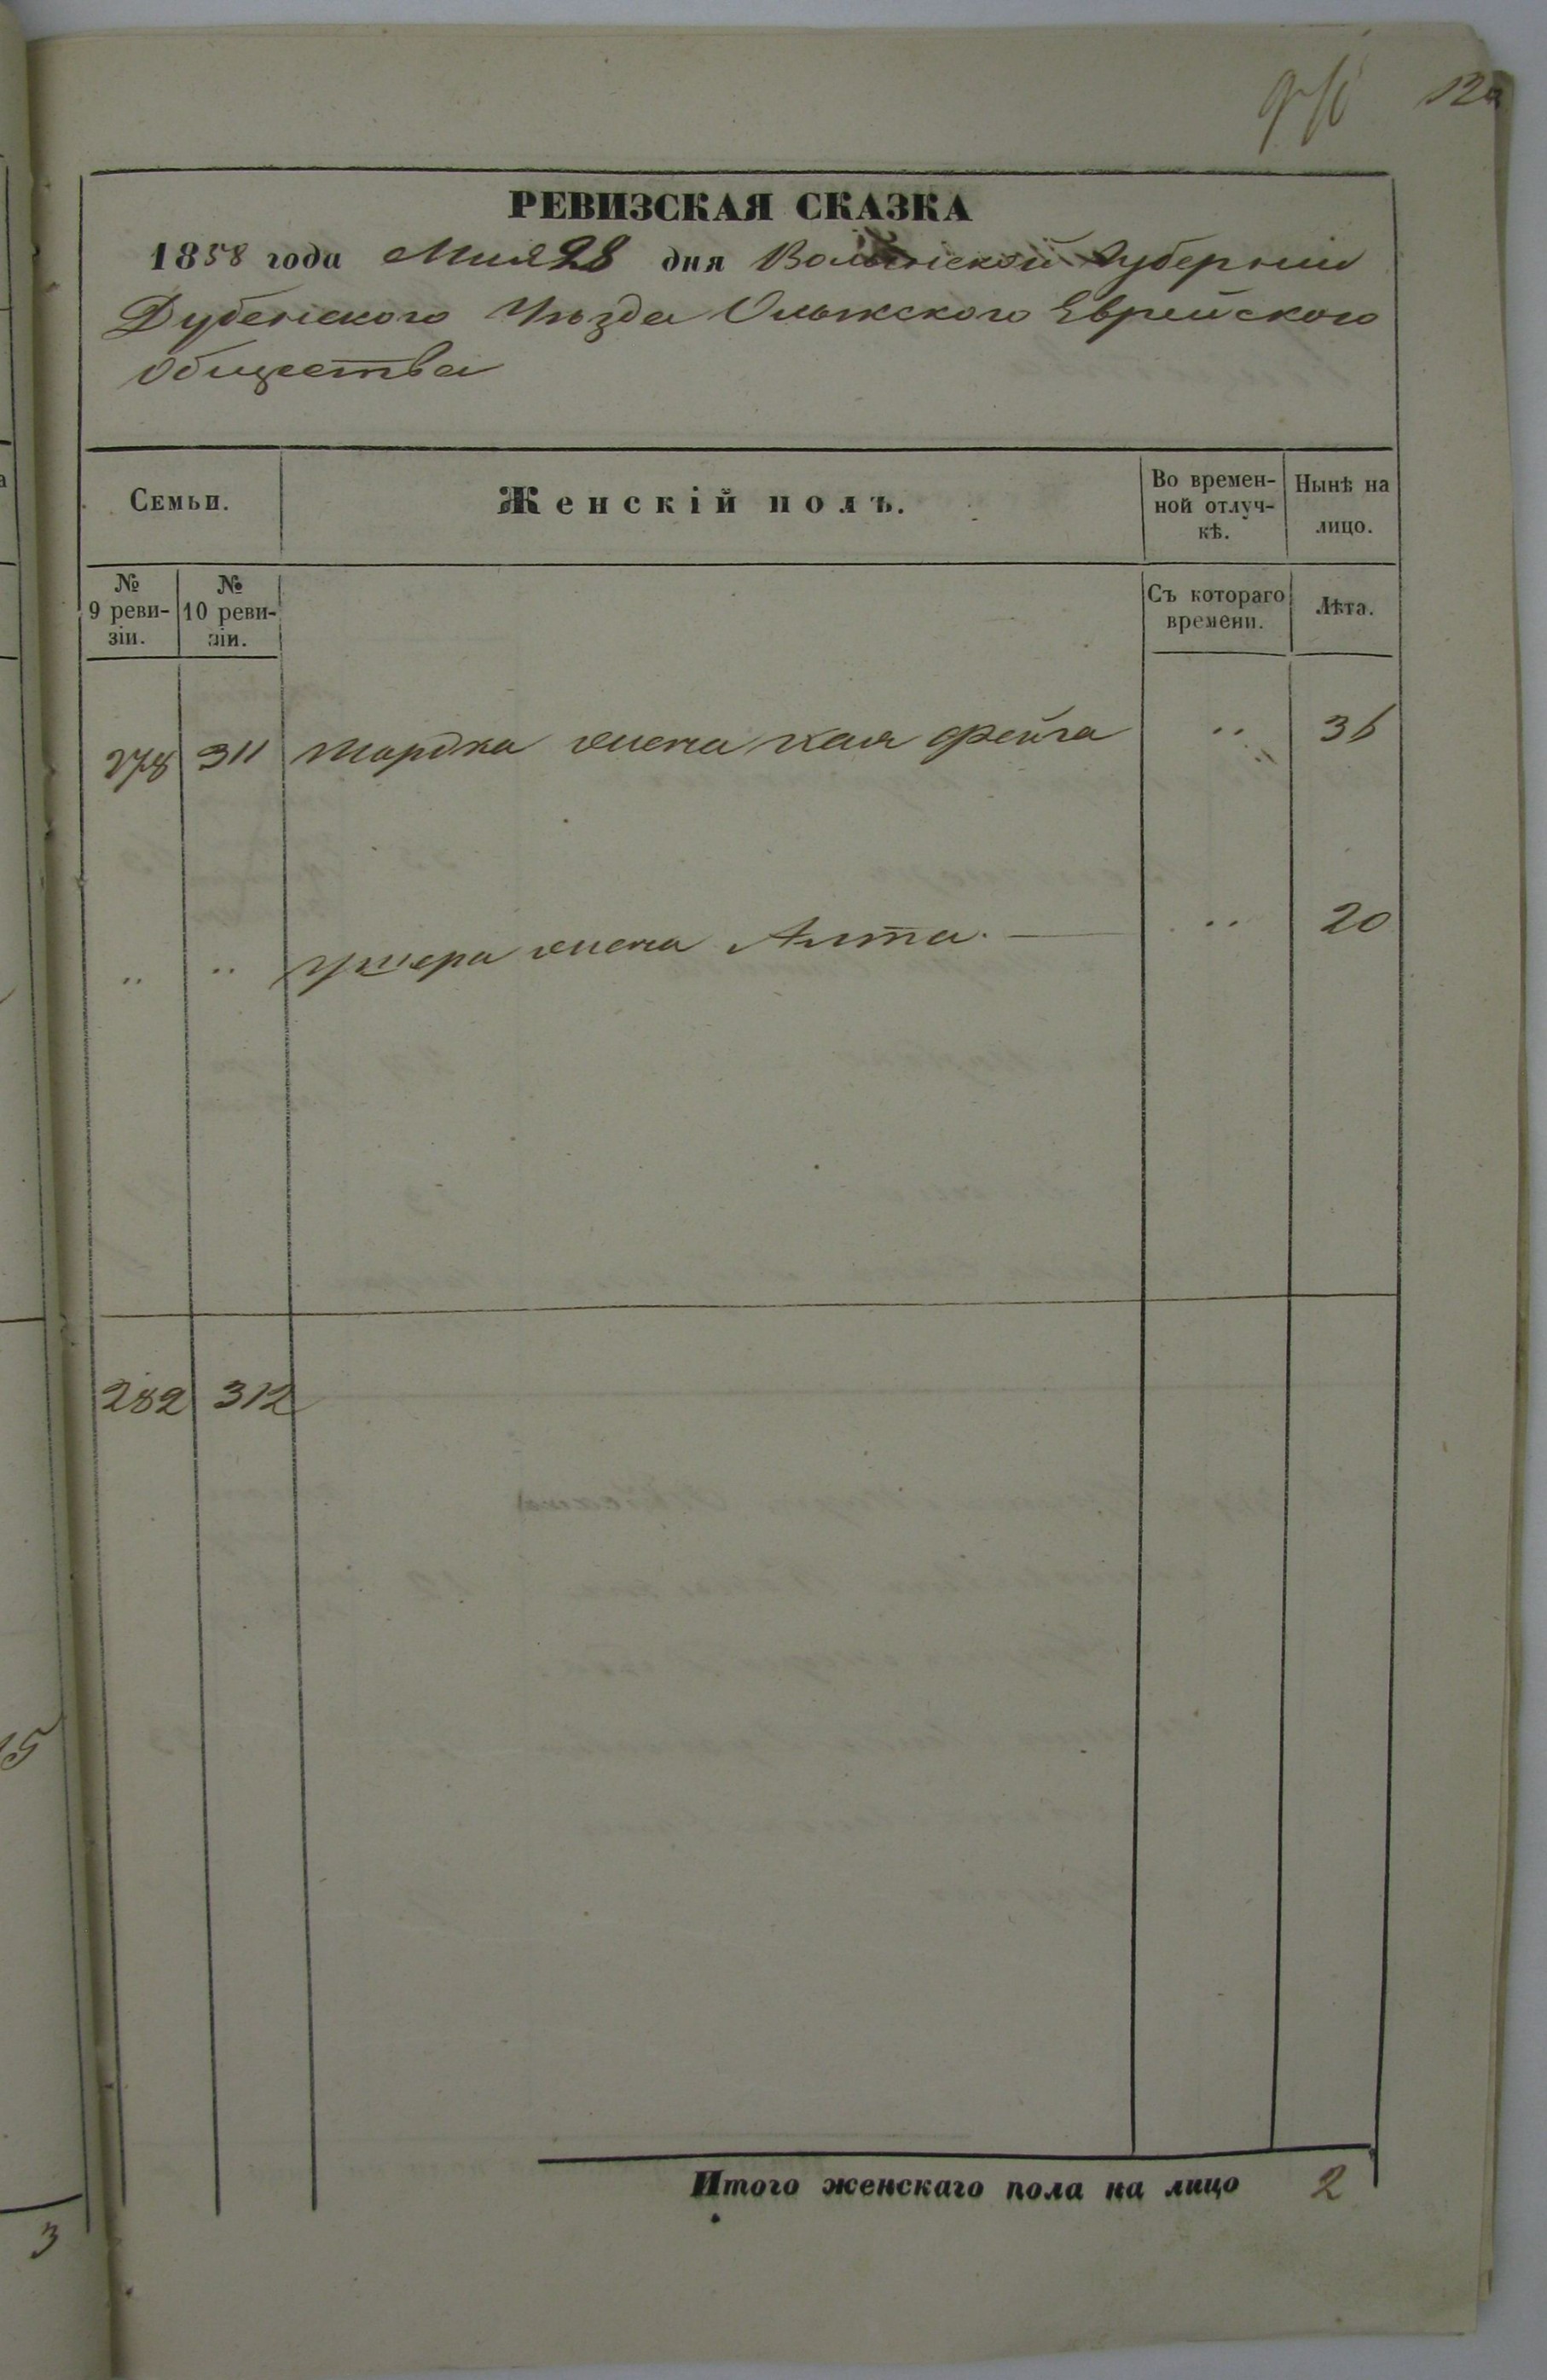 РЕВИЗСКАЯ СКАЗКА
1858 года Мая 28 дня Волынской Губернии
Дубенского Уѣзда Олыкского Еврейского
Общества
Семьи.
Женскій полъ.
Во времен-
ной отлуч-
кѣ.
Нынѣ на
лицо.
№
9 реви-
зіи.
№
10 реви-
зіи.
Съ котораго
времени.
Лѣта.
278 311 Мардка жена Хая Фейга " 36
" " Ушера жена Алта. — " 20
282 312
Итого женскаго пола на лицо 2
15
3